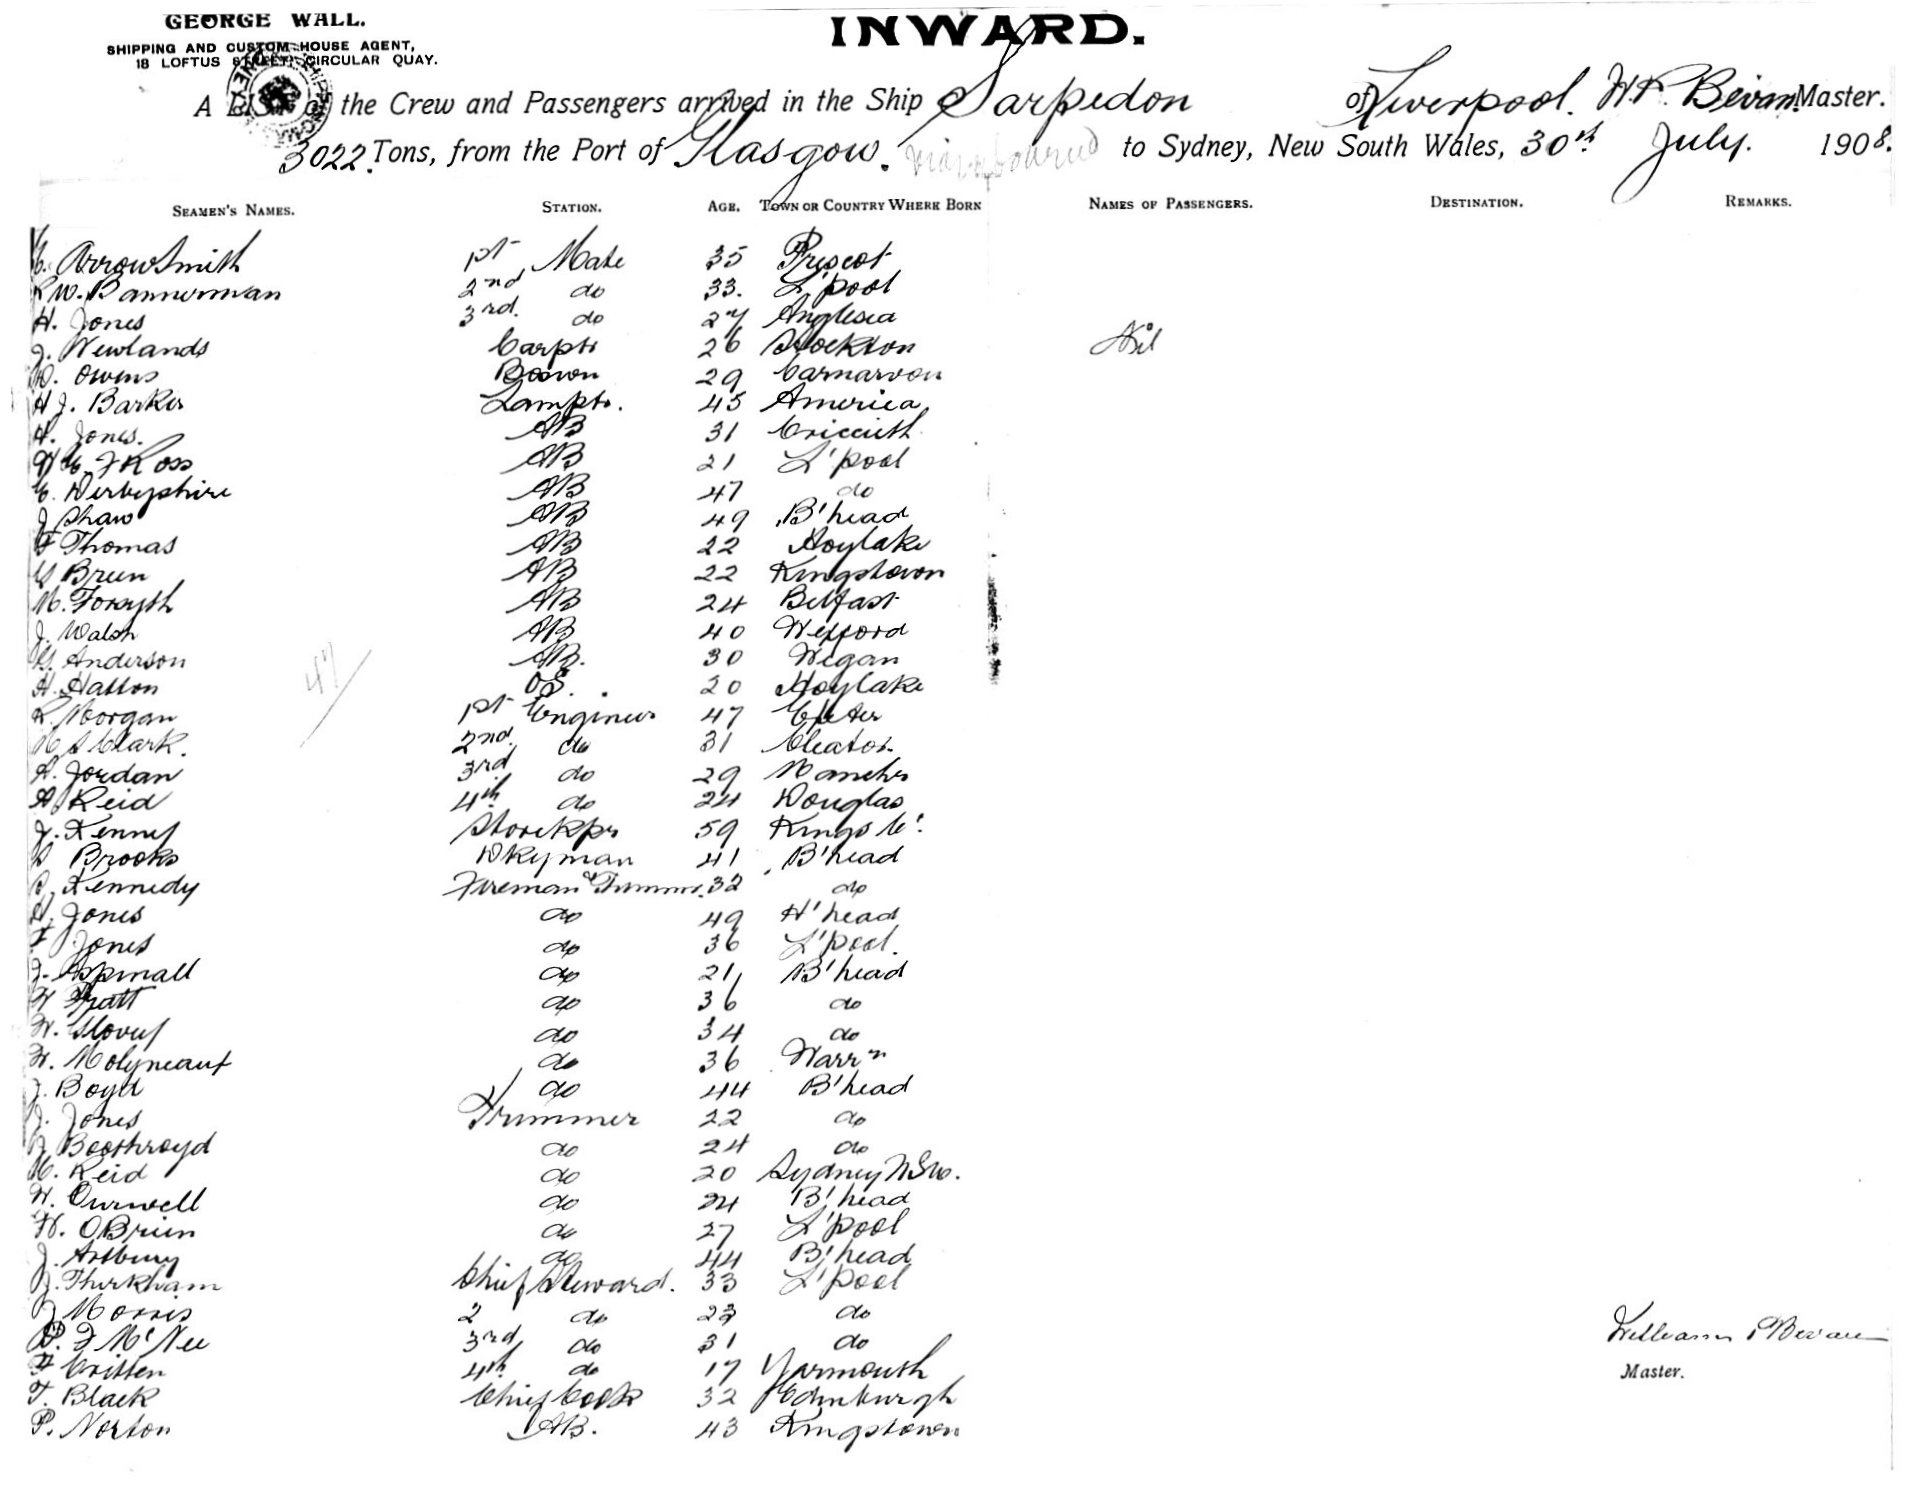 GEORGE WALL.
SHIPPING AND CUSTOM-HOUSE AGENT,
18 LOFTUS STREET, CIRCULAR QUAY.
INWARD.
A LIST of the Crew and Passengers arrived in the Ship Sarpedon of Liverpool. W.P. Bevan. Master.
3022 Tons, from the Port of Glasgow. to Sydney, New South Wales, 30th July. 1908.
SEAMEN'S NAMES. STATION. AGE. TOWN OR COUNTRY WHERE BORN NAMES OF PASSENGERS. DESTINATION. REMARKS.
Arrowsmith 1st Mate 35 Prescot
W. Bannerman 2nd do 33. L'pool
H. Jones 3rd. do 27 Anglesea
J. Newlands Carptr 26 Stockton Nil
D. Owens Bosron 29 Carnarvon
H J. Barker Lamptr. 45 America
H. Jones. AB 31 Criccieth
F Ross AB 21 L'pool
E. Derbyshire AB 47 do
J Shaw AB 49 B'head
F Thomas AB 22 Hoylake
Breen AB 22 Kingstown
M. Forsyth AB 24 Belfast
J. Walsh AB 40 Wexford
G. Anderson AB. 30 Wigan
H. Hatton O.S. 20 Hoylake
47/
R. Morgan 1st Engineer 47 Exeter
Clark. 2nd. do 31 Cleator
A. Jordan 3rd do 29 Manchr
A Reid 4th do 24 Douglas
J. Kenny Storekpr 59 Kings Co.
Brooks Dkyman 41 B'head
Kennedy Fireman & Trimmr. 32 do
Jones do 49 H'head
F Jones do 36 L'pool.
J. Aspinall do 21 B'head
W Pratt do 36 do
W. Glover do 34 do
W. Molyneaux do 36 Warrn
J. Boyd do 44 B'head
J. Jones Trimmer 22 do
J Boothroyd do 24 do
Reid do 20 Sydney NSW.
W. Curwell do 24 B'head
W. OBrien do 27 L'pool
J. Astbury do 44 B'head
J. Thirkham Chief Steward. 33 L'pool
J Morris 2 do 23 do
P. F McNee 3rd do 31 do William P Bevan
F Critten 4th do 17 Yarmouth Master.
T. Black Chief Cook 32 Edinburgh
P. Norton AB. 43 Kingstown